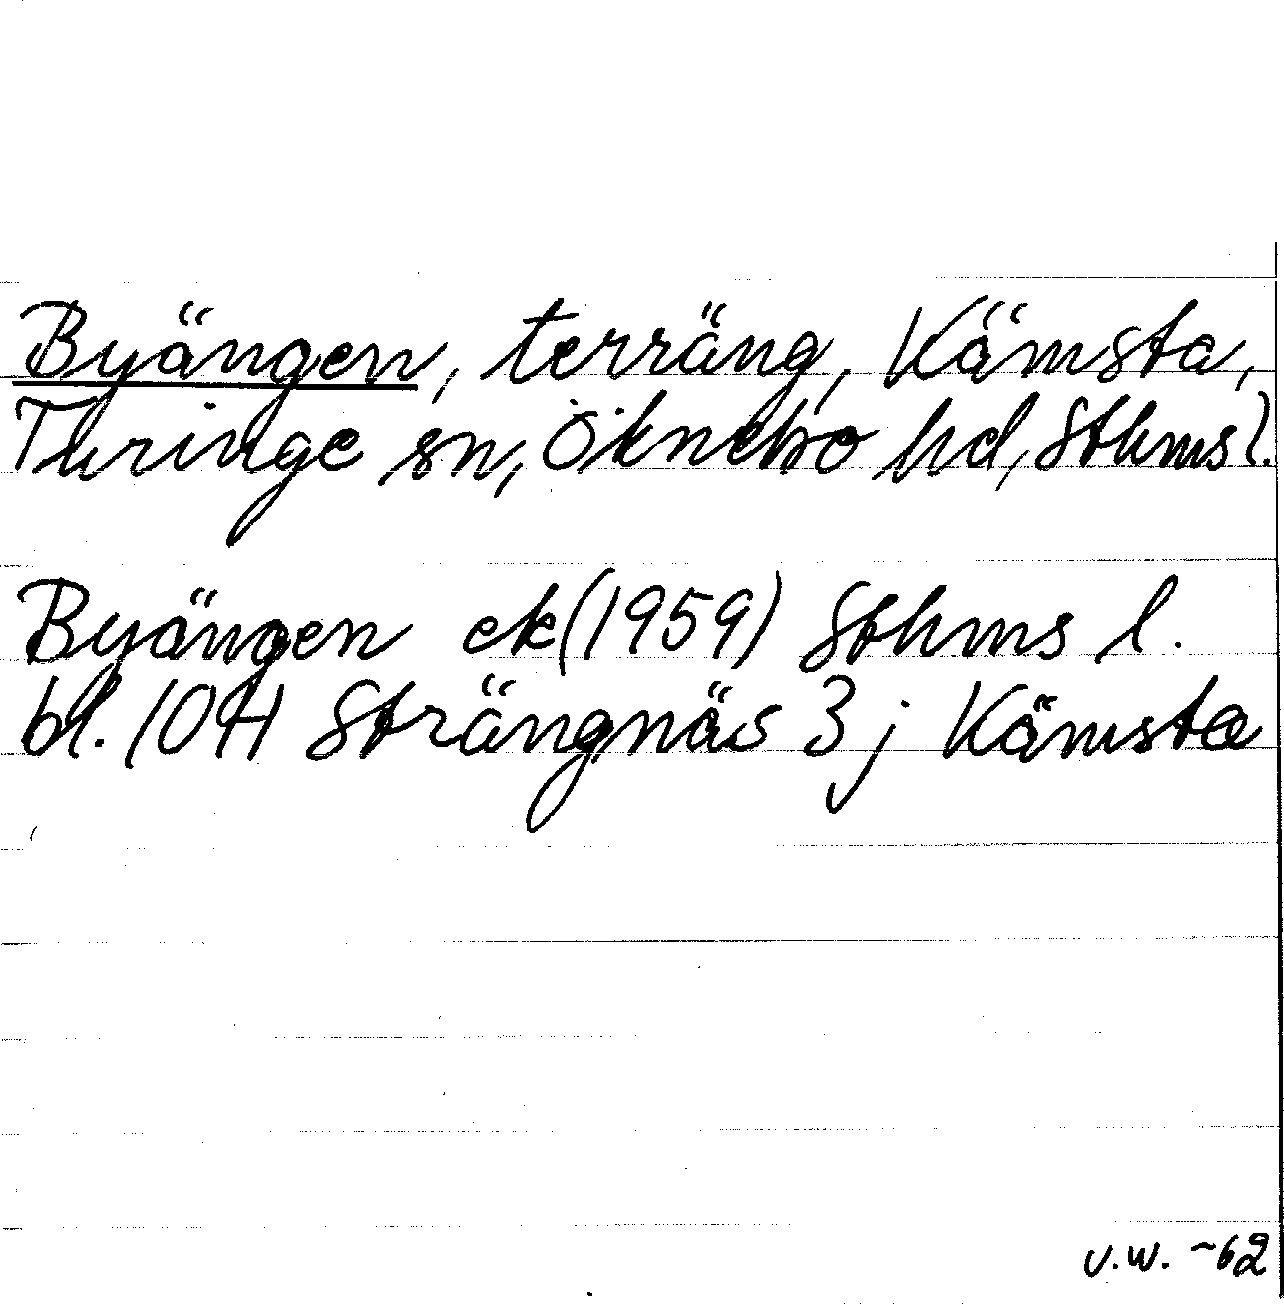 Byängen, terräng, Kämsta,
Turinge sn, Öknebo hd, Sthms l.
Byängen ek (1959) Sthms l.
bl. 10H Strängnäs 3 j Kämsta
v.w. -62